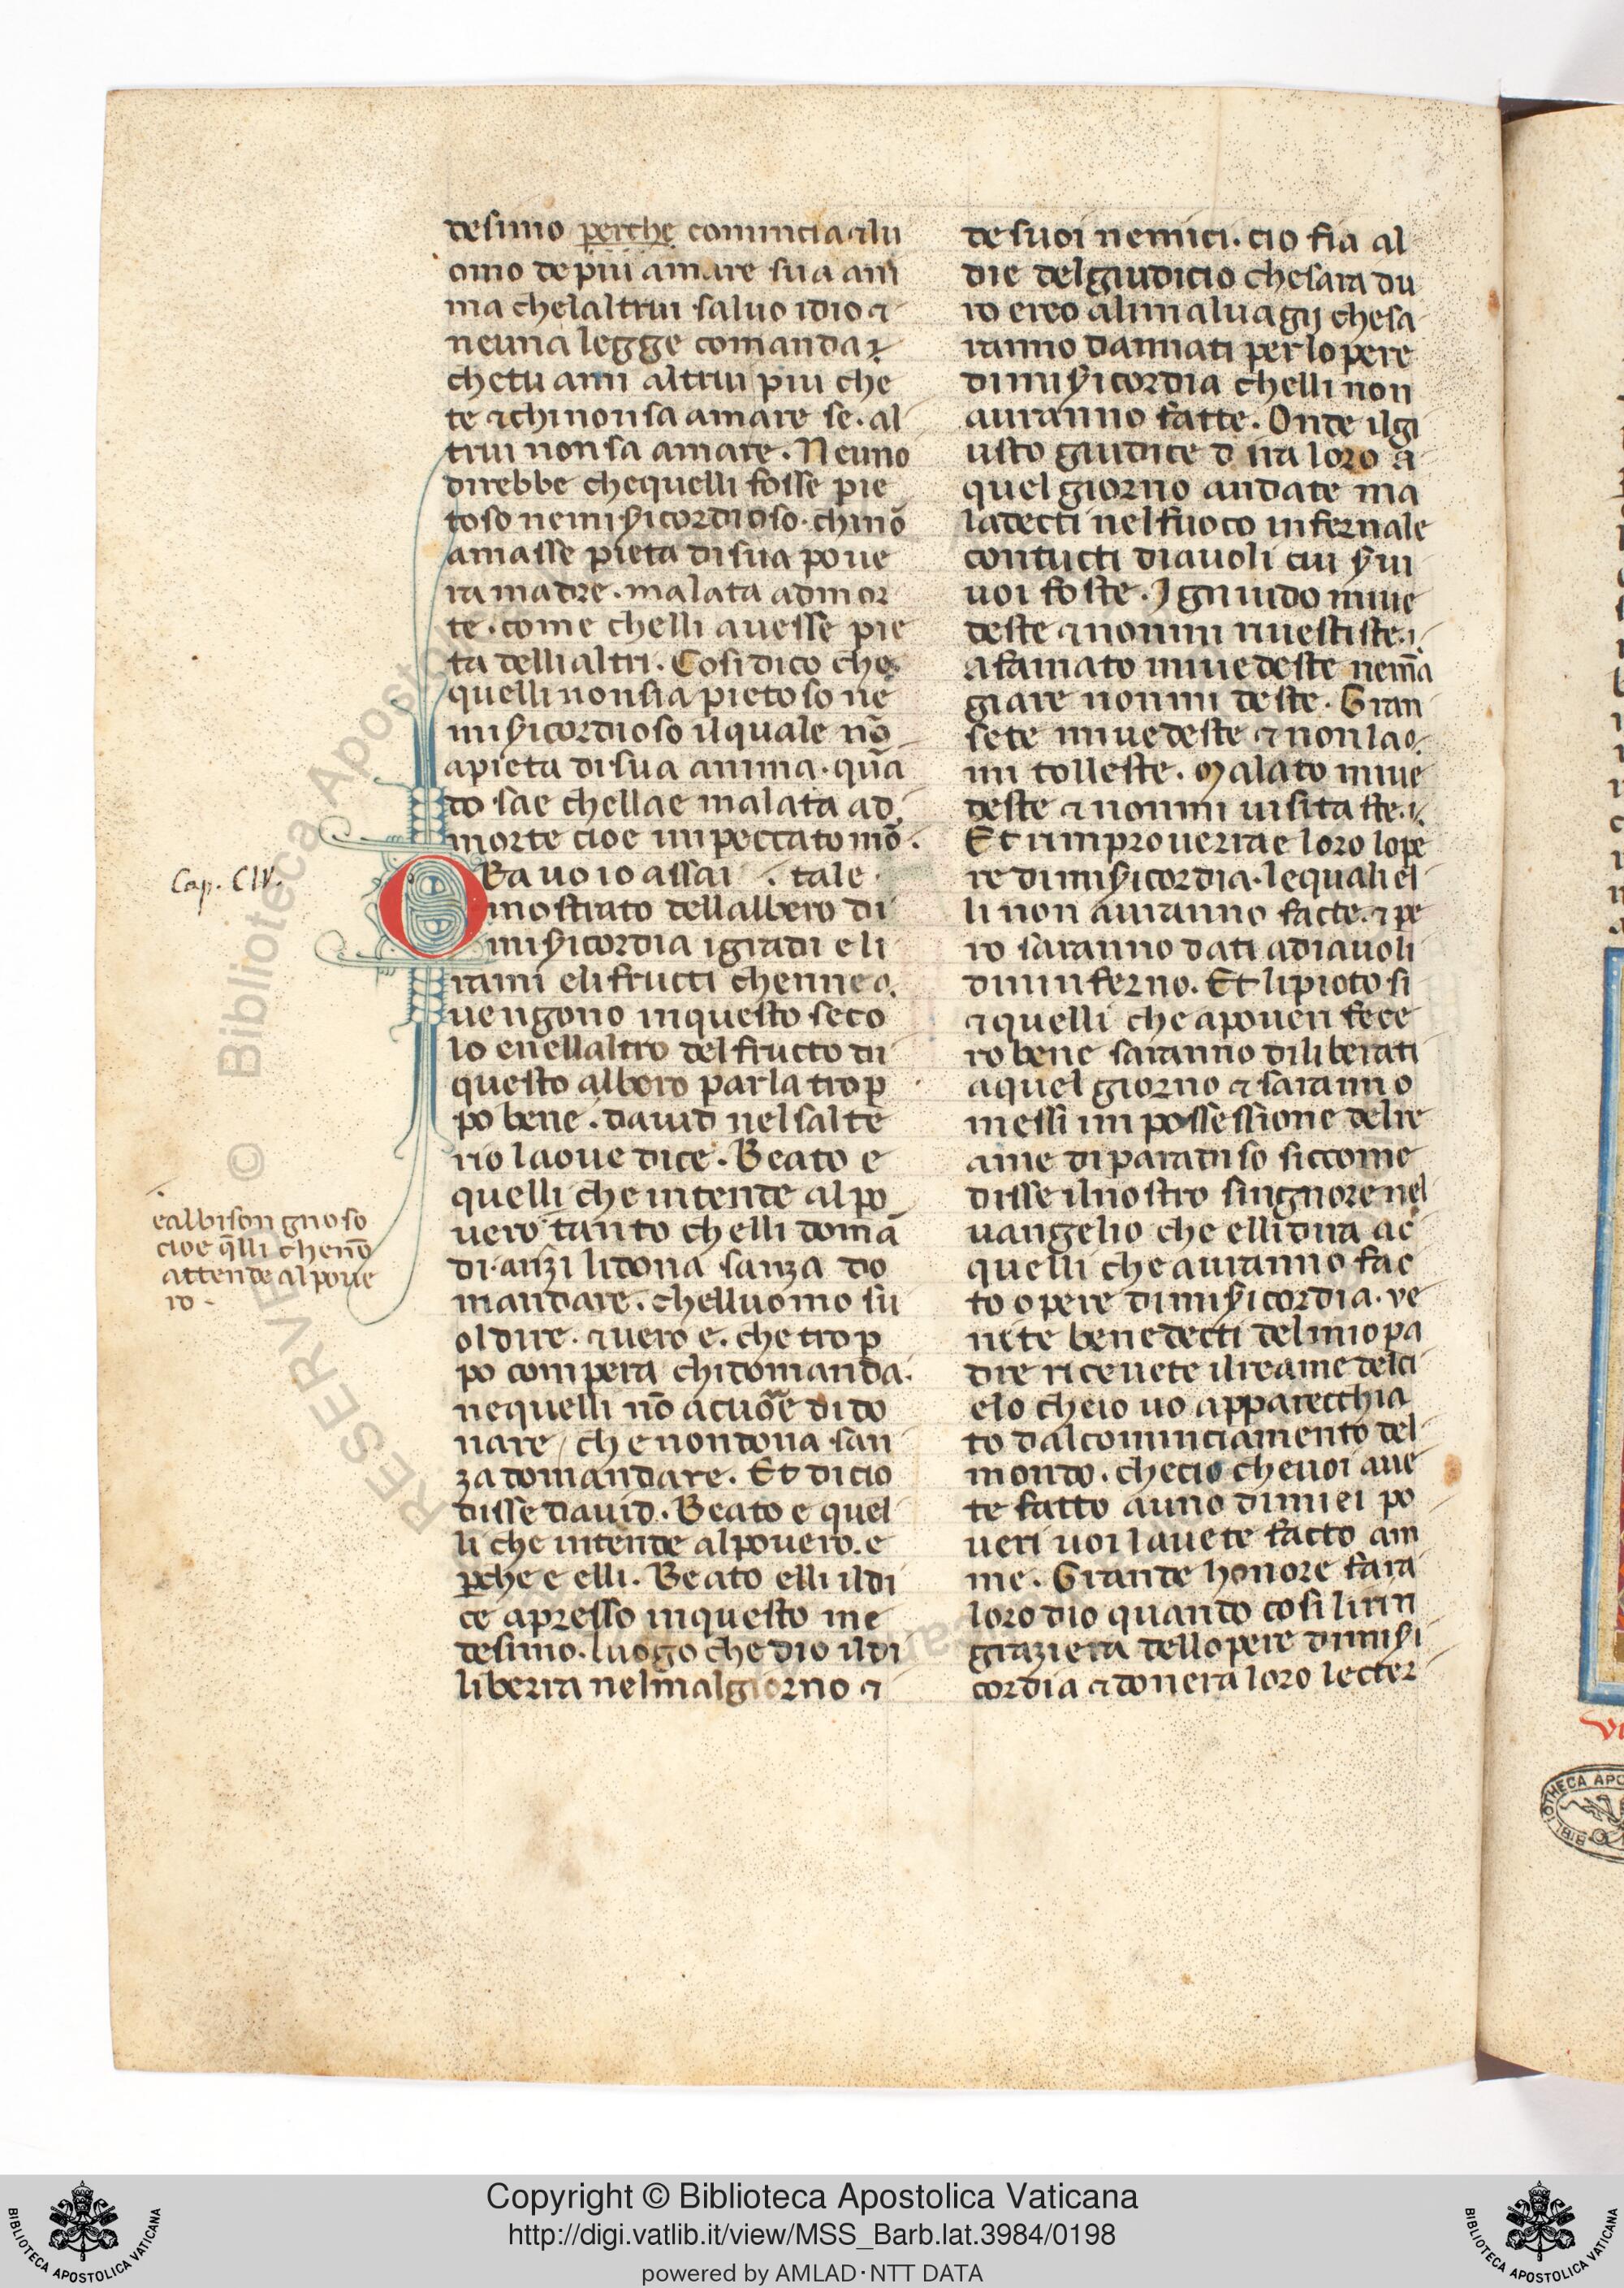 desimo perche comincia aılu
omo de piu amare sua ani
ma chelaltrui saluo idio ⁊
neuna legge comanda
chetu ami altrui piu che
te ⁊ chi non sa amare se. al
trui non sa amare. Neuno
direbbe chequelli fosse pie
toso ne misericordioso. chi nō
amasse pieta di sua poue
ra madre. malata ad mor
te. come chelli auesse pie
ta delli altri. Cosi dico che
quelli non sia pietoso ne
misericordioso il quale nō
a pieta di sua anima. quā
do sae chellae malata ad
morte cioe im peccato mō.
Ora uo io assai . tale
mostrato dellalbero di
misericordia i gradi e li
rami e li fructi che nne
uengono in questo seco
lo e nellaltro del fructo di
questo albero parla trop
po bene. dauid nel salte
rio laoue dice. Beato e
quelli che intende al po
uero tanto chelli domā
di. anzi li dona sanza do
mandare. chelluomo su
ol dire. ⁊ uero e. che trop
po compera chi domanda.
ne quelli nō a cuore di do
nare / che non dona san
za domandare. Et di cio
disse dauid. Beato e quel
li che intende al pouero. e
perche e elli. Beato elli il di
ce apresso in questo me
desimo. luogo che dio il di
liberra nel mal giorno ⁊
Cap. CIV.
e al bisongnoso
cioe q̄lli che nō
attende al poue
ro -
de suoi nemici. cio fia al
die del giudicio che sara du
ro e reo a li maluagij che sa
ranno dannati per lo pere
di misericordia chelli non
auranno fatte. Onde il gi
usto giudice dira loro a
quel giorno andate ma
ladecti nel fuoco infernale
con tucti diauoli cui serui
uoi foste. Ignuido mi ue
deste ⁊ non mi riuestiste.
afamato mi uedeste ne mā
giare non mi deste. Gran
sete mi uedeste ⁊ non la
mi tolleste. Malato mi ue
deste ⁊ non mi uisitaste.
Et rimprouerrae loro lope
re di misericordia. le quali el
li non auranno facte. ⁊ pe
ro saranno dati a diauoli
di ninferno. Et li pietosi
⁊ quelli che a poueri fece
ro bene saranno diliberati
a quel giorno ⁊ saranno
messi im possessione del re
ame di paradiso siccome
disse il nostro singnore nel
uangelio che elli dira ac
quelli che auranno fac
to opere di misericordia. ve
nite benedecti del mio pa
dre riceuete il reame del ci
elo che io uo apparecchia
to dal cominciamento del
mondo. che cio che uoi aue
te fatto a uno di miei po
ueri uoi lauete facto am
me. Grande honore fara
loro dio quando cosi li rin
graziera dellopere di miseri
cordia ⁊ donera loro lecter
Copyright © Biblioteca Apostolica Vaticana
http://digi.vatlib.it/view/MSS_Barb.lat.3984/0198
powered by AMLAD·NTT DATA